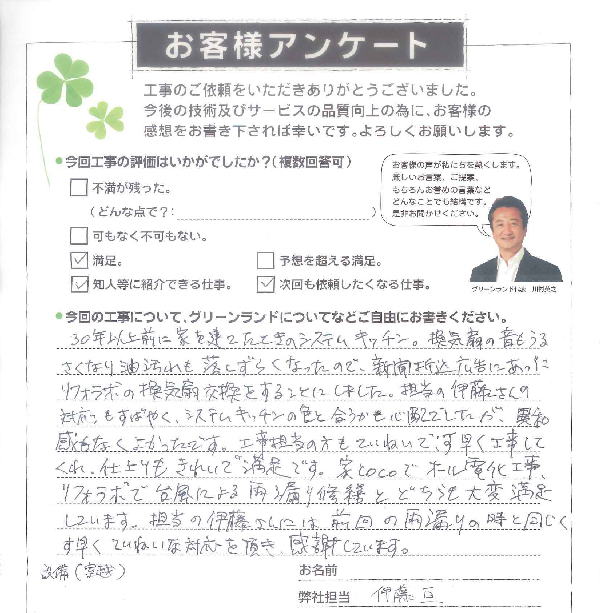 お客様アンケート
工事のご依頼をいただきありがとうございました。
今後の技術及びサービスの品質向上の為に、お客様の
感想をお書き下されば幸いです。よろしくお願いします。
●今回工事の評価はいかがでしたか?(複数回答可)
お客様の声が私たちを熱くします。
厳しいお言葉、ご提案、
もちろんお誉めの言葉など
どんなことでも結構です。
是非お聞かせください。
不満が残った。
(どんな点で?:
)
可もなく不可もない。
満足。
予想を超える満足。
知人等に紹介できる仕事。
次回も依頼したくなる仕事。
グリーンランド代表 川村
●今回の工事について、グリーンランドについてなどご自由にお書きください。
30年以上前に家を建てたときのシステムキッチン。換気扇の音もうる
さくなり油汚れも落しずらくなったので、新聞折込広告にあった
リフォラボの換気扇交換をすることにしました。担当の伊藤さんの
対応もすばやく、システムキッチンの色と合うかも心配でしたが、異和
感もなくよかったです。工事担当の方もていねいで、す早く工事して
くれ、仕上りもきれいで満足です。家cocoでオール電化工事、
リフォラボで台風による雨漏り修繕とどちらも大変満足
しています。担当の伊藤さんには前回の雨漏りの時と同じく
す早くていねいな対応を頂き、感謝しています。
設備(宮越)
お名前
弊社担当 伊藤